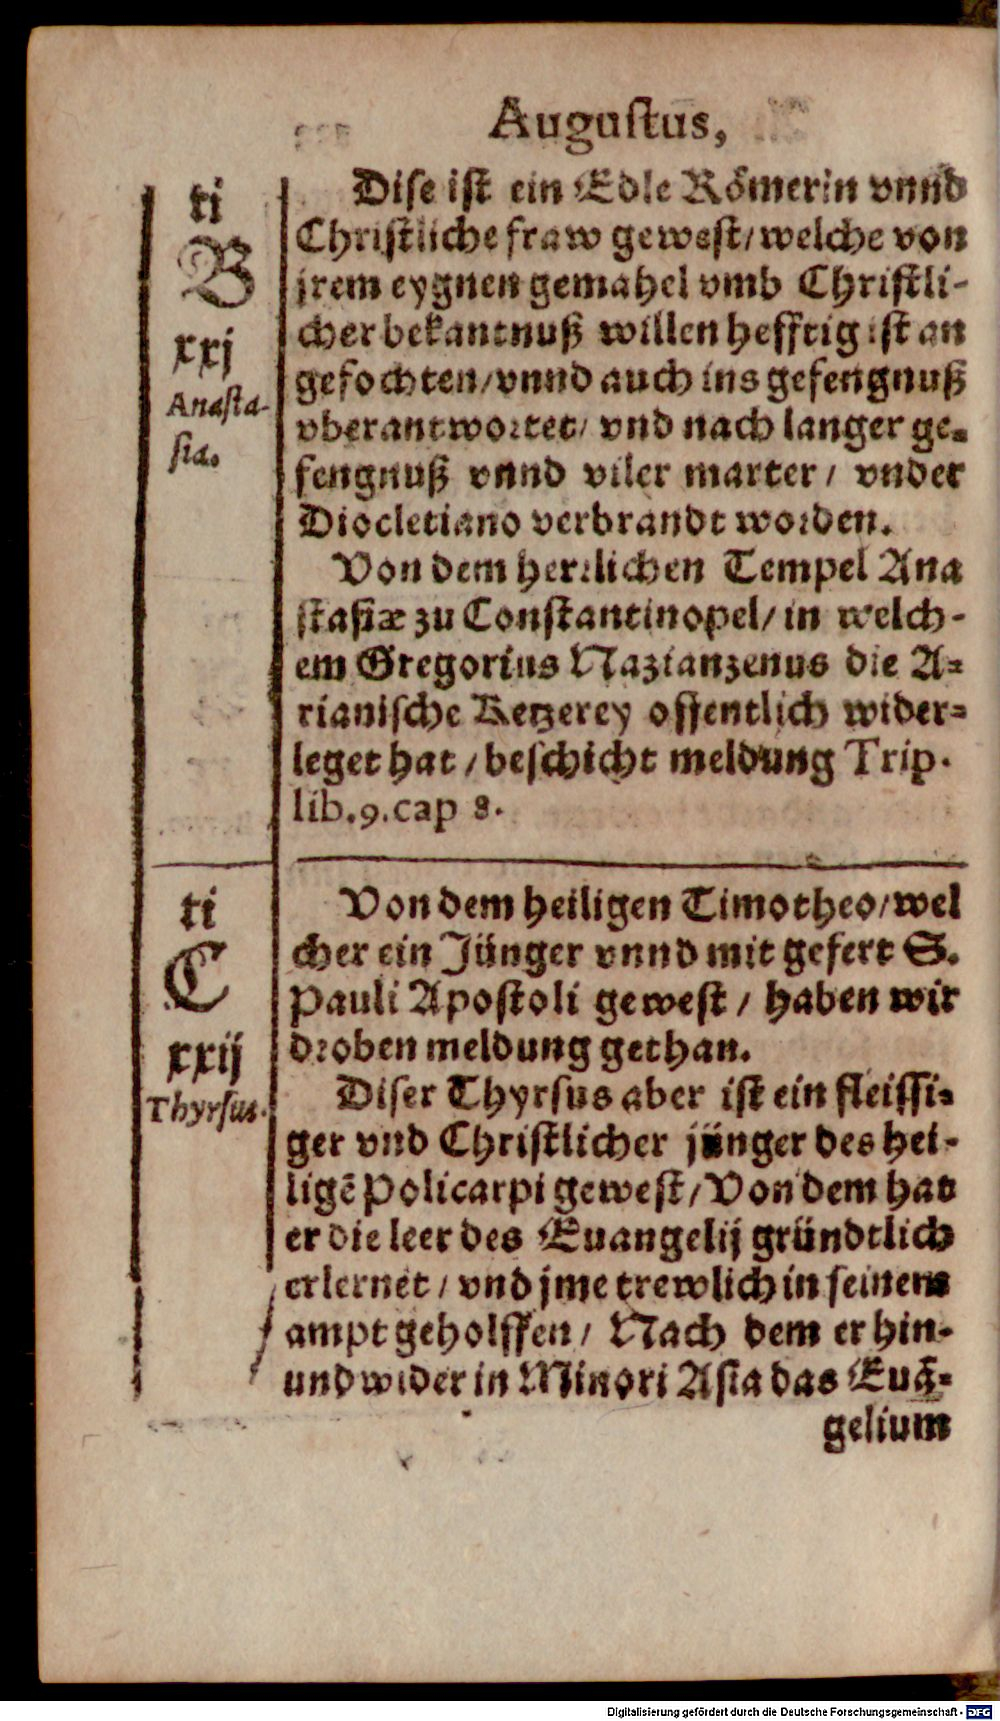 Augustus,
ti
B
xxj
Anasta-
sia.
Dise ist ein Edle Römerin vnnd
Christliche fraw gewest/welche von
jrem eygnen gemahel vmb Christli-
cher bekantnuß willen hefftig ist an
gefochten/vnnd auch ins gefengnuß
vberantwortet/ vnd nach langer ge-
fengnuß vnnd viler marter/ vnder
Diocletiano verbrandt worden.
Von dem herrlichen Tempel Ana
stasiæ zu Constantinopel/ in welch-
em Gregorius Nazianzenus die A-
rianische Ketzerey offentlich wider-
leget hat/ beschicht meldung Trip.
lib.9.cap 8.
ti
C
xxij
Thyrsus.
Von dem heiligen Timotheo/wel
cher ein Jünger vnnd mit gefert S.
Pauli Apostoli gewest/ haben wir
droben meldung gethan.
Diser Thyrsus aber ist ein fleissi-
ger vnd Christlicher jünger des hei-
ligē Policarpi gewest/Von dem hat
er die leer des Euangelij gründtlich
erlernet/ vnd jme trewlich in seinem
ampt geholffen/ Nach dem er hin-
und wider in Minori Asia das Euā-
gelium
Digitalisierung gefördert durch die Deutsche Forschungsgemeinschaft - DFG